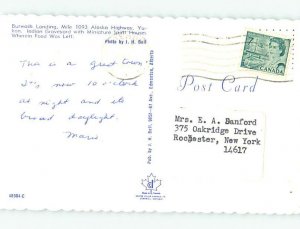 Burwash Landing, Mile 1093 Alaska Highway, Yu-
kon. Indian Graveyard with Miniature Spirit Houses
Wherein Food Was Left.
Photo by J. H. Bell
This is a great town
It's now 10 o'clock
at night and its
broad daylight.
Marie
Post Card
CANADA
Mrs. E. A. Banford
375 Oakridge Drive
Rochester, New York
14617